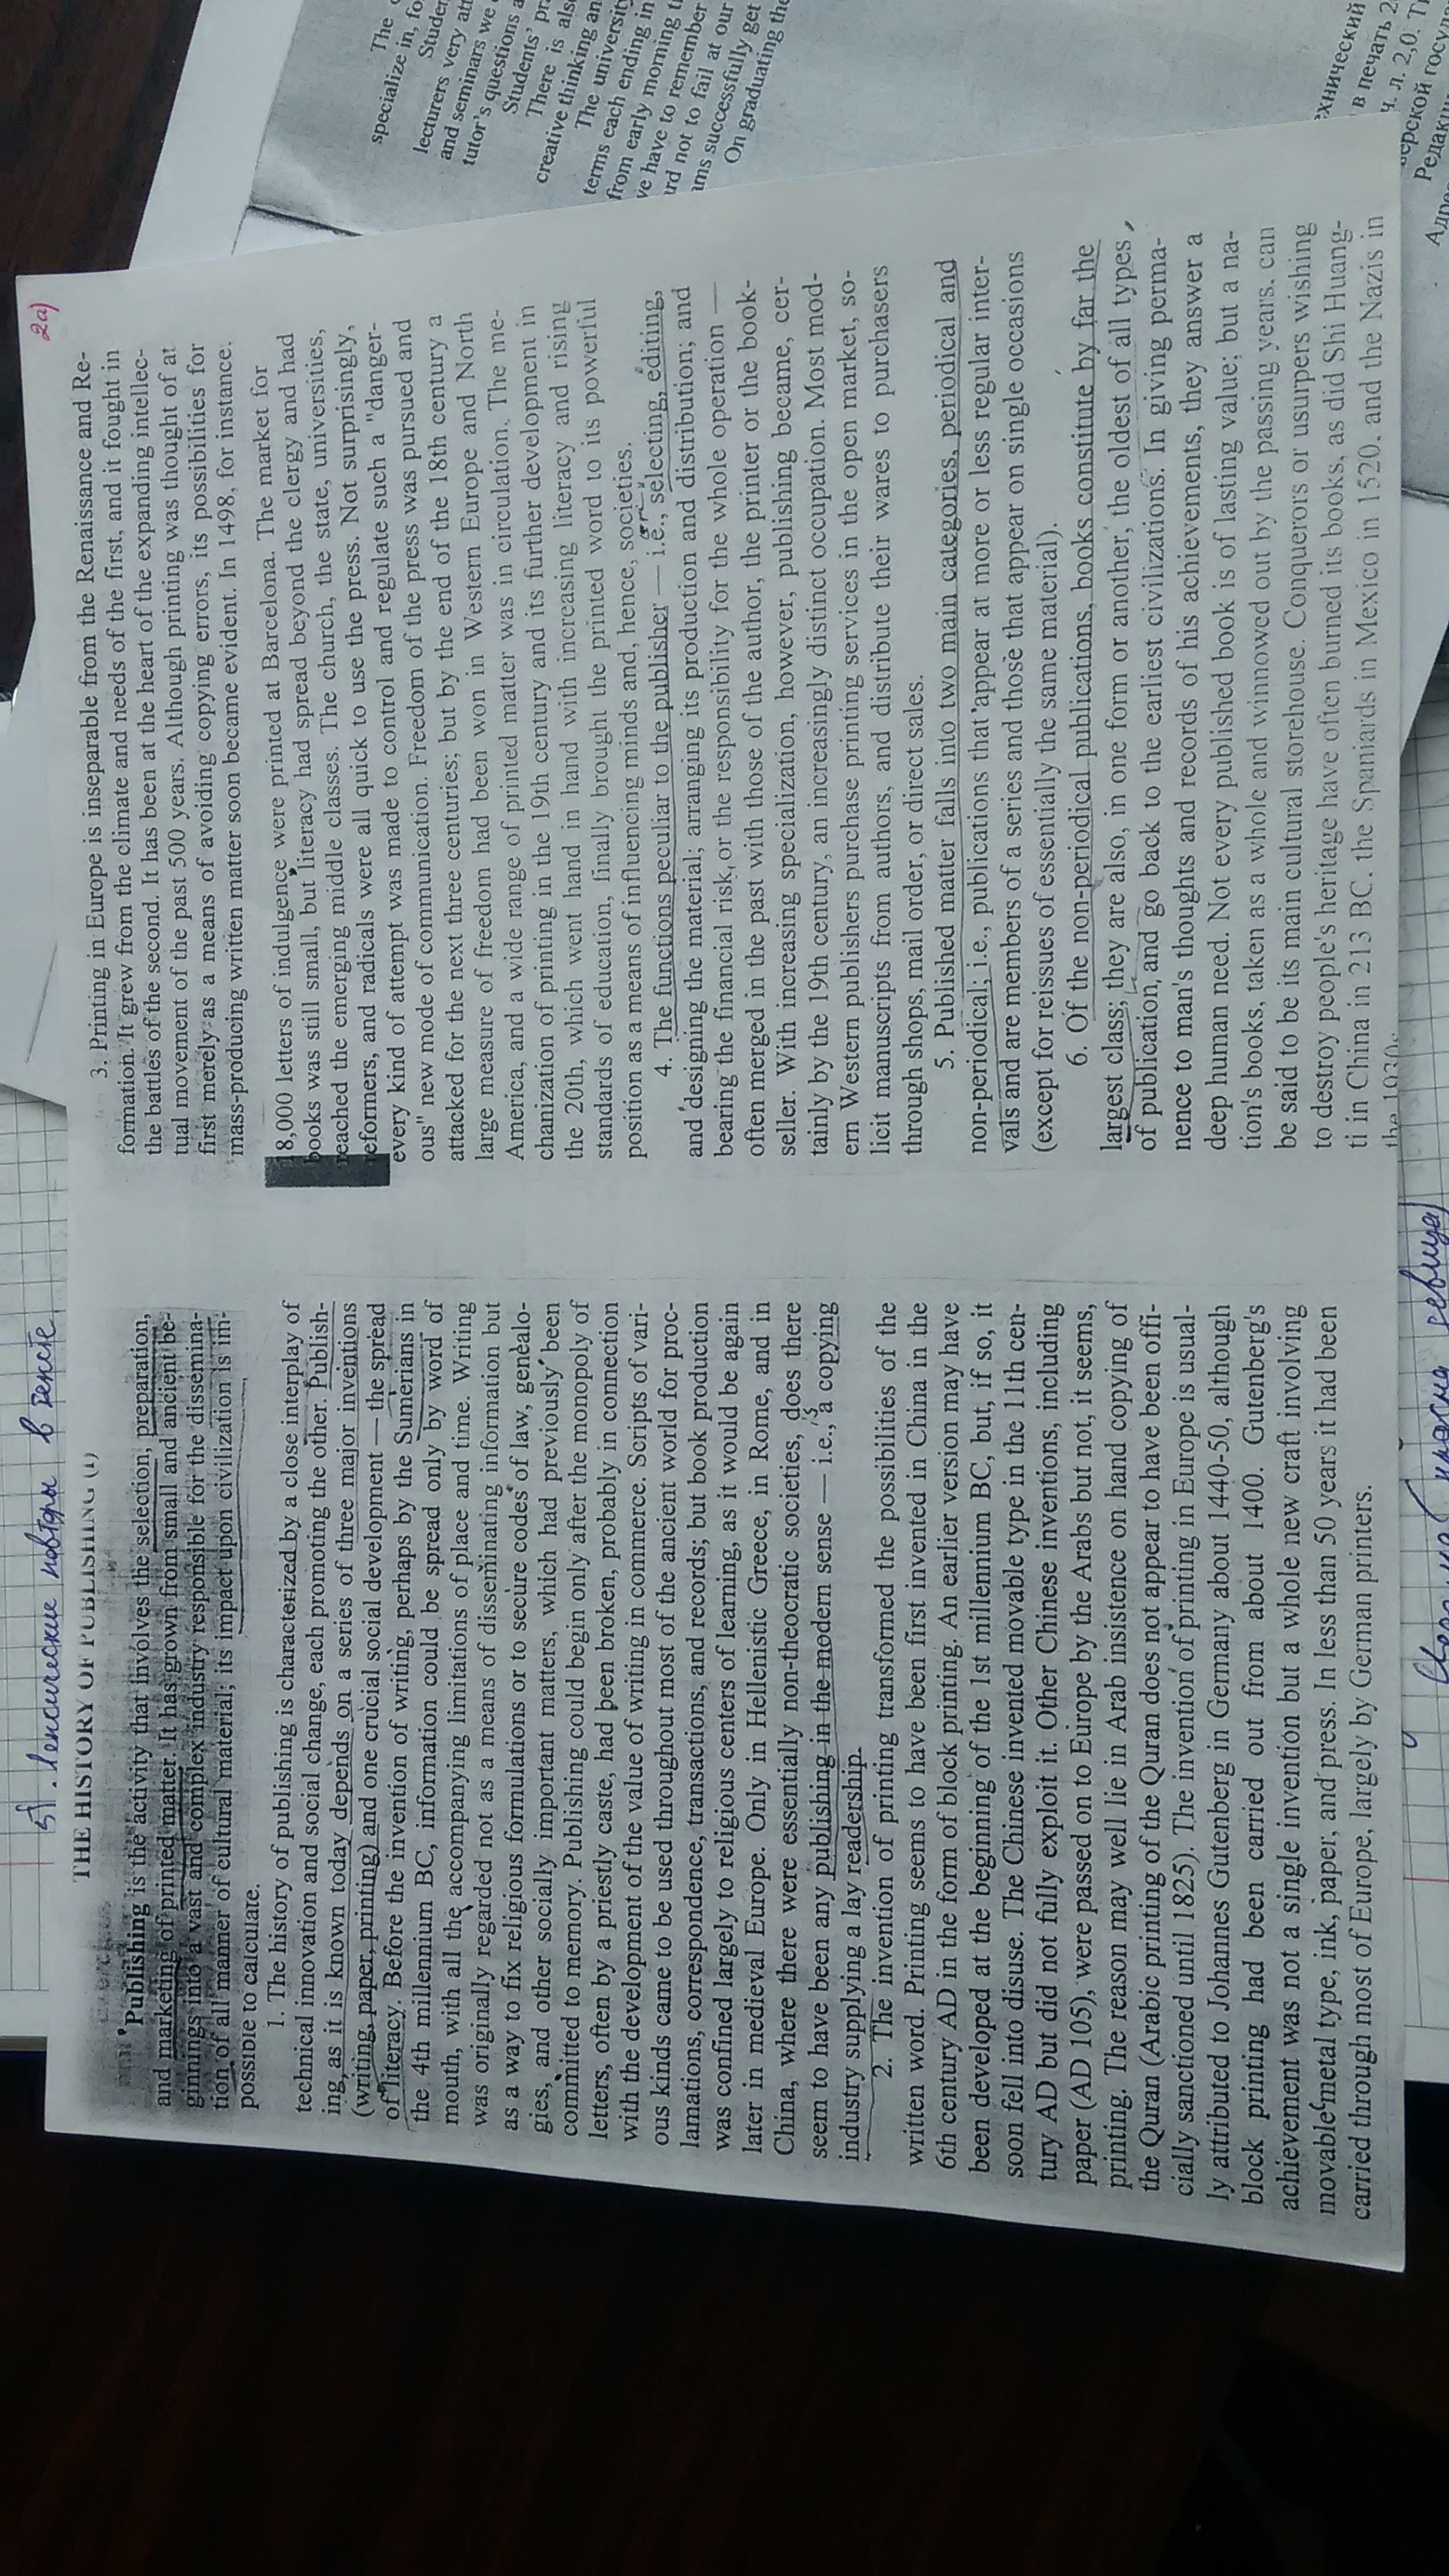 5). Лексические повторы в тексте
THE HISTORY OF PUBLISHING (1)
Publishing is the activity that involves the selection, preparation,
and marketing of printed matter. It has grown from small and ancient be-
ginnings into a vast and complex industry responsible for the dissemina-
tion of all manner of cultural material; its impact upon civilization is im-
possible to calculate.
1. The history of publishing is characterized by a close interplay of
technical innovation and social change, each promoting the other. Publish-
ing as it is known today depends on a series of three major inventions
(writing, paper, printing) and one crucial social development — the spread
of literacy. Before the invention of writing, perhaps by the Sumerians in
the 4th millennium BC, information could be spread only by word of
mouth, with all the accompanying limitations of place and time. Writing
was originally regarded not as a means of disseminating information but
as a way to fix religious formulations or to secure codes of law, genealo-
gies, and other socially important matters, which had previously been
committed to memory. Publishing could begin only after the monopoly of
letters, often by a priestly caste, had been broken, probably in connection
with the development of the value of writing in commerce. Scripts of vari-
ous kinds came to be used throughout most of the ancient world for proc-
lamations, correspondence, transactions, and records; but book production
was confined largely to religious centers of learning, as it would be again
later in medieval Europe. Only in Hellenistic Greece, in Rome, and in
China, where there were essentially non-theocratic societies, does there
seem to have been any publishing in the modern sense — i.e., a copying
industry supplying a lay readership.
2. The invention of printing transformed the possibilities of the
written word. Printing seems to have been first invented in China in the
6th century AD in the form of block printing. An earlier version may have
been developed at the beginning of the 1st millennium BC, but, if so, it
soon fell into disuse. The Chinese invented movable type in the 11th cen-
tury AD but did not fully exploit it. Other Chinese inventions, including
paper (AD 105), were passed on to Europe by the Arabs but not, it seems,
printing. The reason may well lie in Arab insistence on hand copying of
the Quran (Arabic printing of the Quran does not appear to have been offi-
cially sanctioned until 1825). The invention of printing in Europe is usual-
ly attributed to Johannes Gutenberg in Germany about 1440-50, although
block printing had been carried out from about 1400. Gutenberg's
achievement was not a single invention but a whole new craft involving
movable metal type, ink, paper, and press. In less than 50 years it had been
carried through most of Europe, largely by German printers.
2а)
3. Printing in Europe is inseparable from the Renaissance and Re-
formation. It grew from the climate and needs of the first, and it fought in
the battles of the second. It has been at the heart of the expanding intellec-
tual movement of the past 500 years. Although printing was thought of at
first merely as a means of avoiding copying errors, its possibilities for
mass-producing written matter soon became evident. In 1498, for instance.
18,000 letters of indulgence were printed at Barcelona. The market for
books was still small, but literacy had spread beyond the clergy and had
reached the emerging middle classes. The church, the state, universities,
reformers, and radicals were all quick to use the press. Not surprisingly,
every kind of attempt was made to control and regulate such a "danger-
ous" new mode of communication. Freedom of the press was pursued and
attacked for the next three centuries; but by the end of the 18th century a
large measure of freedom had been won in Western Europe and North
America, and a wide range of printed matter was in circulation. The me-
chanization of printing in the 19th century and its further development in
the 20th, which went hand in hand with increasing literacy and rising
standards of education, finally brought the printed word to its powerful
position as a means of influencing minds and, hence, societies.
4. The functions peculiar to the publisher — i.e., selecting, editing,
and designing the material; arranging its production and distribution; and
bearing the financial risk or the responsibility for the whole operation —
often merged in the past with those of the author, the printer or the book-
seller. With increasing specialization, however, publishing became, cer-
tainly by the 19th century, an increasingly distinct occupation. Most mod-
ern Western publishers purchase printing services in the open market, so-
licit manuscripts from authors, and distribute their wares to purchasers
through shops, mail order, or direct sales.
5. Published matter falls into two main categories, periodical and
non-periodical; i.e., publications that appear at more or less regular inter-
vals and are members of a series and those that appear on single occasions
(except for reissues of essentially the same material).
6. Of the non-periodical publications, books constitute by far the
largest class; they are also, in one form or another, the oldest of all types
of publication, and go back to the earliest civilizations. In giving perma-
nence to man's thoughts and records of his achievements, they answer a
deep human need. Not every published book is of lasting value; but a na-
tion's books, taken as a whole and winnowed out by the passing years, can
be said to be its main cultural storehouse. Conquerors or usurpers wishing
to destroy people's heritage have often burned its books, as did Shi Huang-
ti in China in 213 BC. the Spaniards in Mexico in 1520. and the Nazis in
the 1930s
The
specialize in, fo
Studen
lecturers very
and seminars we
tutor's questions a
Students' pr
There is als
creative thinking an
The university
terms each ending in
from early morning
ve have to remember
rd not to fail at our
ams successfully get
On graduating the
ехнический
в печать 2
ч. л. 2,0.
верской госу
Редак
Адре